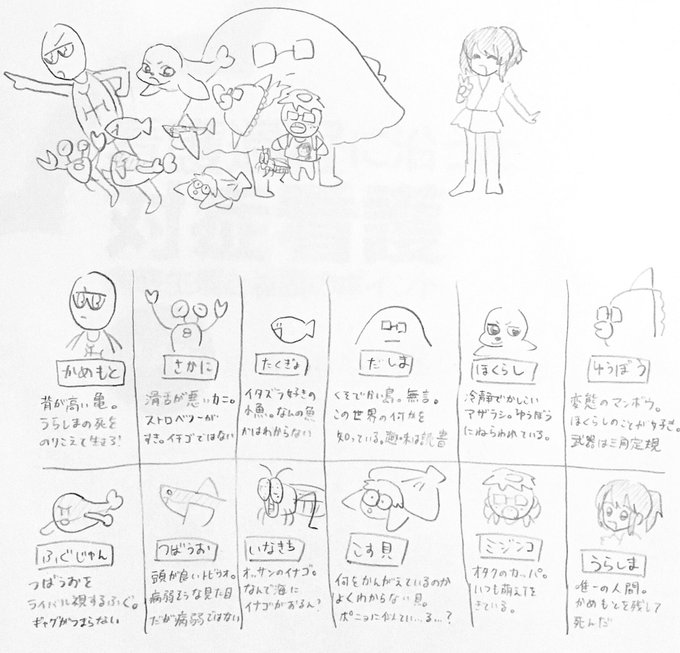 かめもと
背が高い亀。
うらしまの死を
のりこえて生きる!
さかに
滑舌が悪いカニ。
ストロベリーが
すき。イチゴではない
たくぎょ
イタズラ好きの
小魚。なんの魚
かはわからない
だしま
くそでかい島。無言。
この世界の何かを
知っている。趣味は読書
ほくらし
冷静でかしこい
アザラシ。ゆうぼう
にねらわれている。
ゆうぼう
変態のマンボウ。
ほくらしのことが好き。
武器は三角定規
ふぐじゅん
つばうおを
ライバル視するふぐ。
ギャグがつまらない
つばうお
頭が良いトビウオ。
病弱そうな見た目
だが病弱ではない
いなきち
オッサンのイナゴ。
なんで海に
イナゴがおるん?
こす貝
何をかんがえているのか
よくわからない貝。
ポニョに似てい…る…?
ミジンコ
オタクのカッパ。
いつも萌えTを
きている。
うらしま
唯一の人間。
かめもとを残して
死んだ